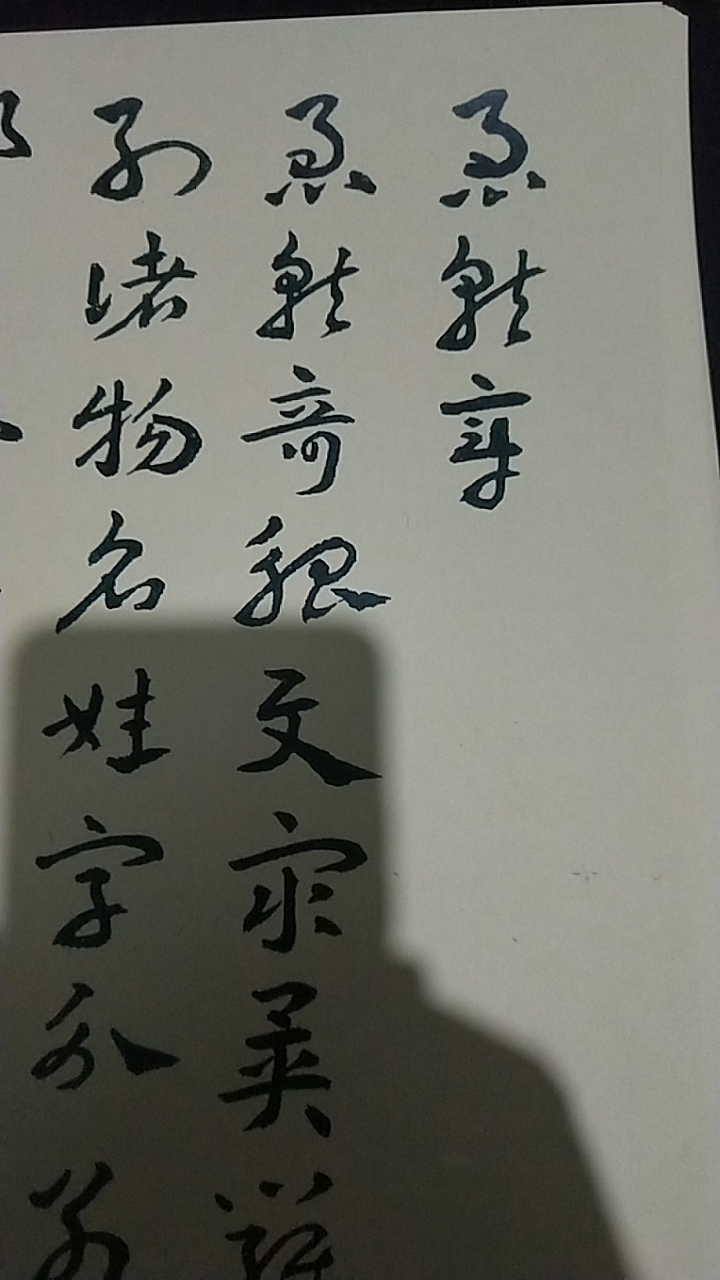 急就章
急就奇觚與衆異
羅列諸物名姓字
分別